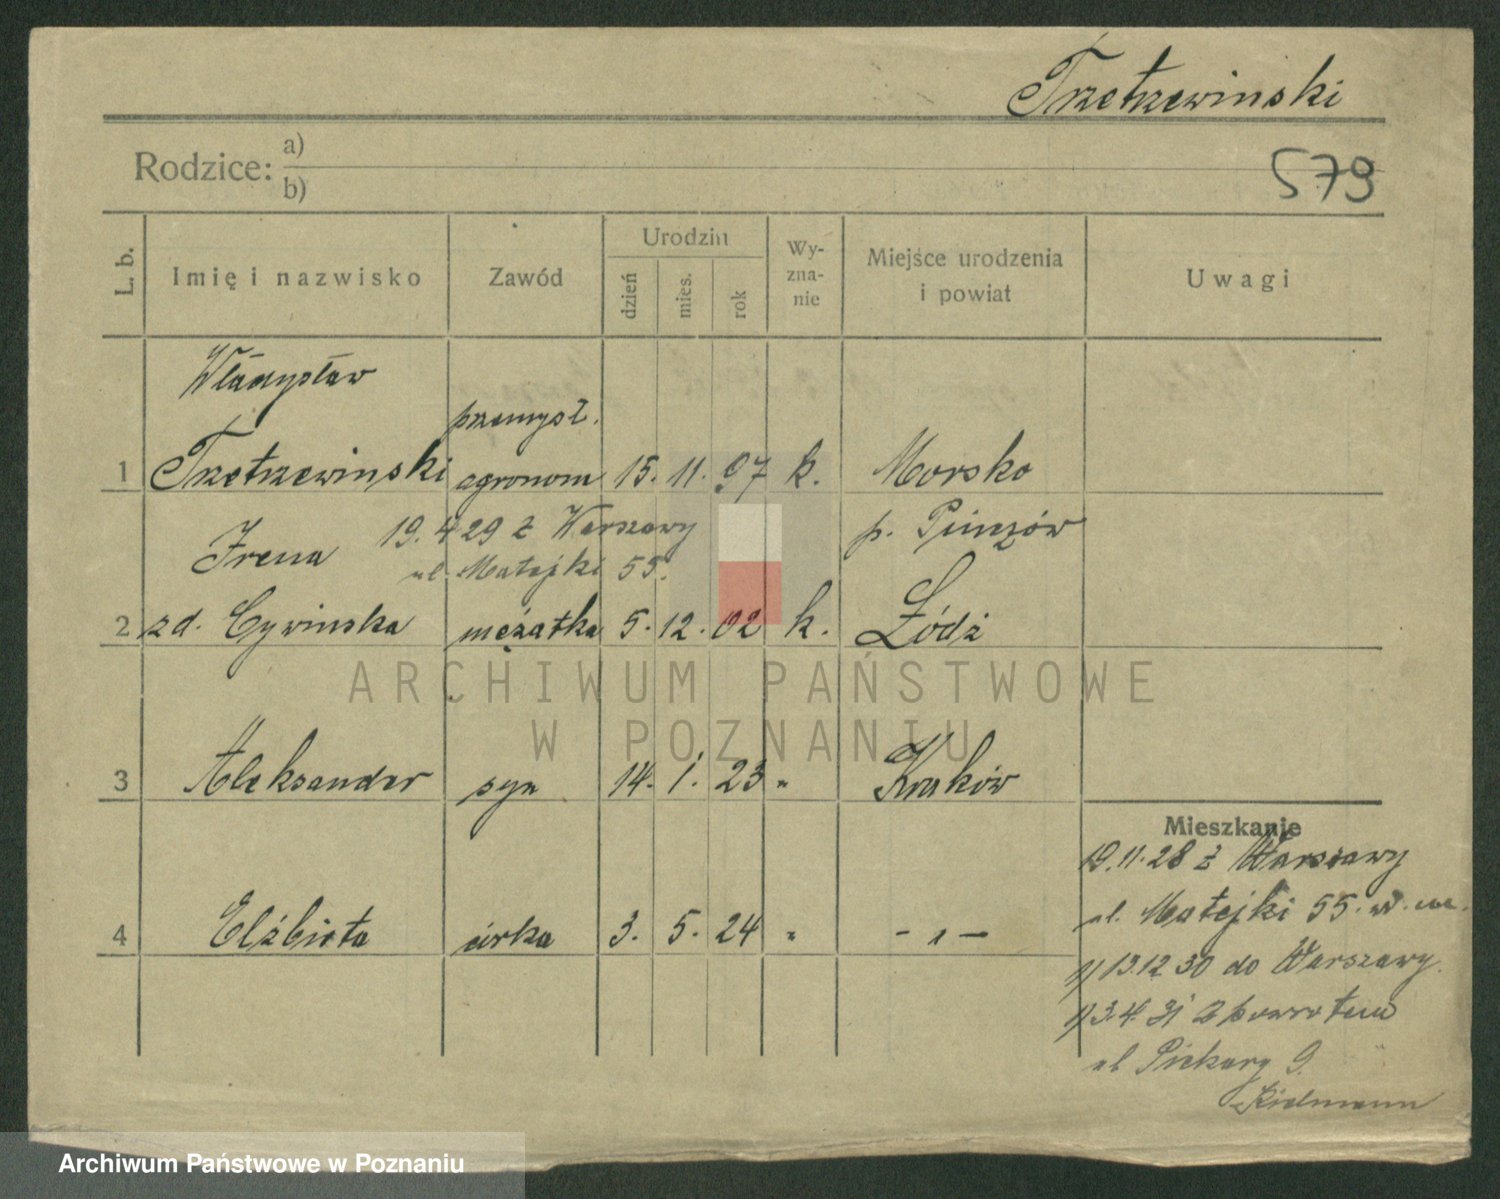 Trzetrzewinski
Rodzice: a)
b)
579
L. b.
Imię i nazwisko
Zawód
Urodzin
dzień
mies.
rok
Wy-
zna-
nie
Miejsce urodzenia
i powiat
Uwagi
Władysław
przemysł.
1 Trzetrzewinski agronom 15. 11. 97 k. Morsko
19. 4 29 z Warszawy p. Pinczów
Irena
ul. Matejki 55.
2 zd. Cywinska mężatka 5. 12. 02 k. Łódź
ARCHIWUM PAŃSTWOWE
W POZNANIU
3 Aleksander syn 14. 1. 23 " Kraków
Mieszkanie
19.11.28 z Warszawy
ul. Matejki 55.
4 Elżbieta córka 3. 5. 24 " - " -
1) 13.12 30 do Warszawy.
1) 3.4. 31 z powrotem
ul Piekary 9.
Archiwum Państwowe w Poznaniu